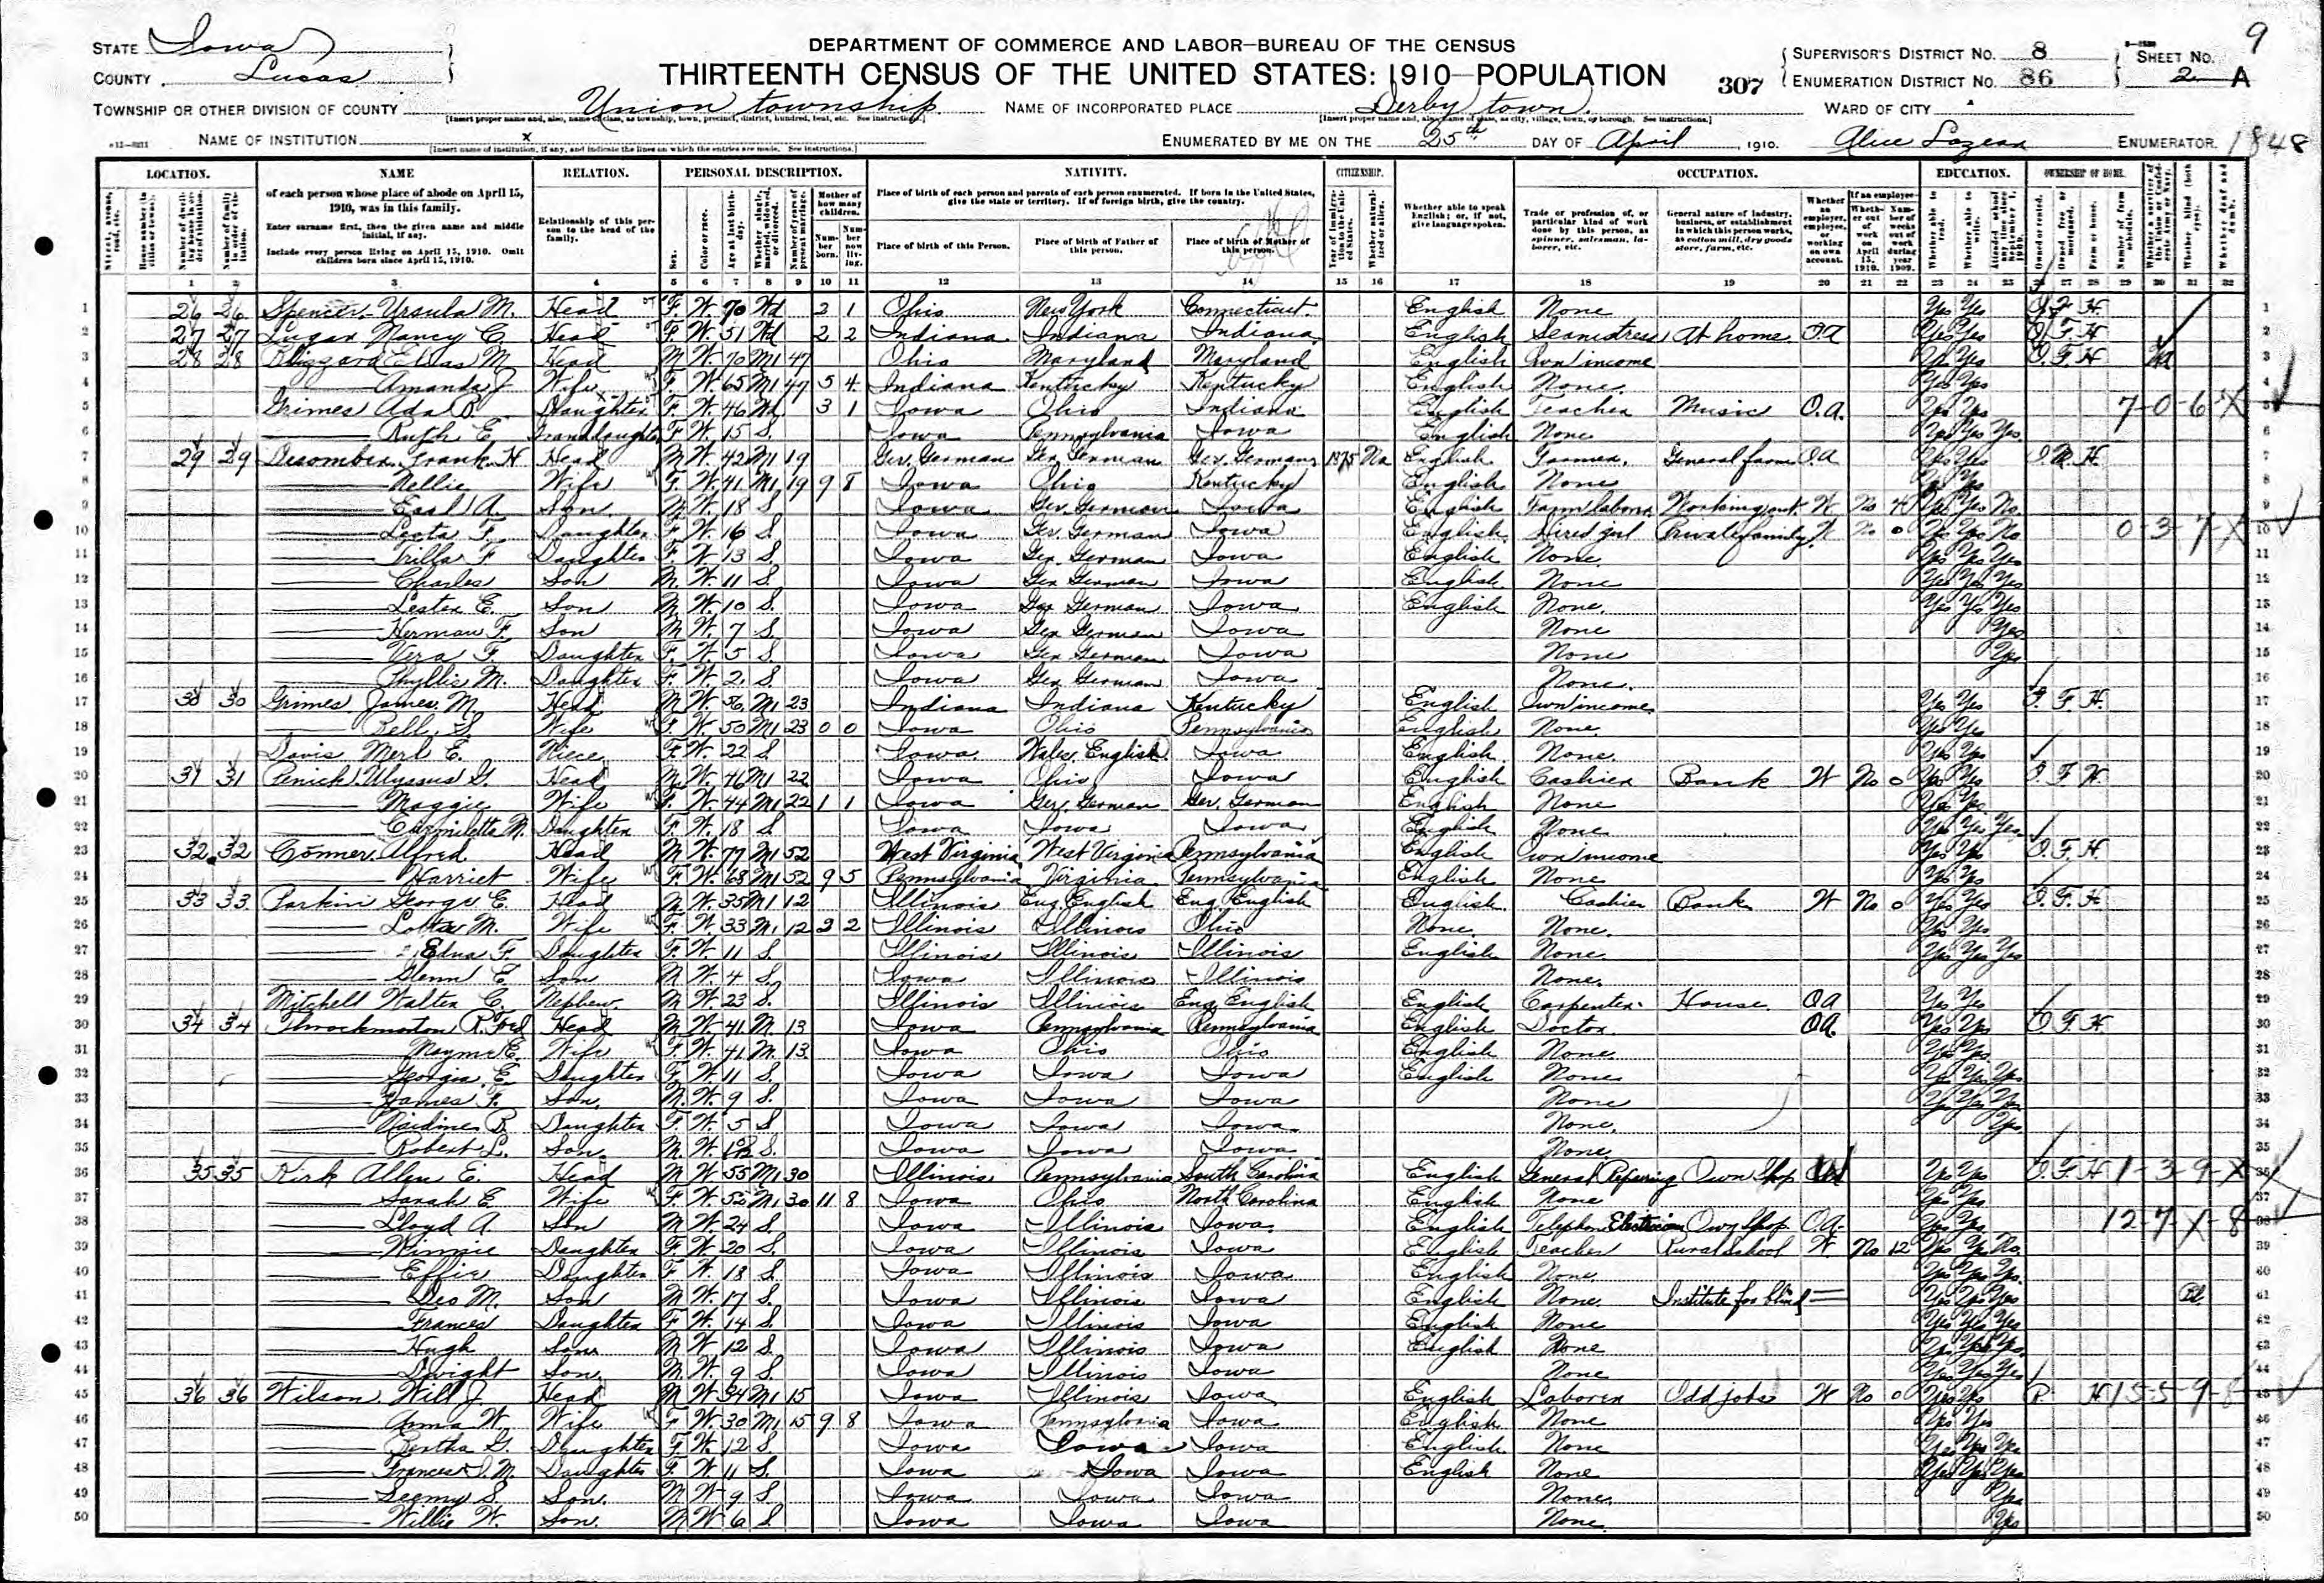 9
STATE Iowa
COUNTY Lucas
DEPARTMENT OF COMMERCE AND LABOR—BUREAU OF THE CENSUS
THIRTEENTH CENSUS OF THE UNITED STATES: 1910—POPULATION
307
SUPERVISOR'S DISTRICT NO. 8
ENUMERATION DISTRICT NO. 86
SHEET NO. 2 A
TOWNSHIP OR OTHER DIVISION OF COUNTY Union township
NAME OF INCORPORATED PLACE Derby town
WARD OF CITY
NAME OF INSTITUTION x
ENUMERATED BY ME ON THE 25th DAY OF April, 1910. Alice ENUMERATOR. 1848
LOCATION. NAME RELATION. PERSONAL DESCRIPTION. NATIVITY. CITIZENSHIP. OCCUPATION. EDUCATION. OWNERSHIP OF HOME.
of each person whose place of abode on April 15, 1910, was in this family.
Enter surname first, then the given name and middle initial, if any.
Include every person living on April 15, 1910. Omit children born since April 15, 1910.
Relationship of this person to the head of the family.
Place of birth of each person and parents of each person enumerated. If born in the United States, give the state or territory. If of foreign birth, give the country.
Place of birth of this Person. Place of birth of Father of this person. Place of birth of Mother of this person.
Whether able to speak English; or, if not, give language spoken.
Trade or profession of, or particular kind of work done by this person, as spinner, salesman, laborer, etc.
General nature of industry, business, or establishment in which this person works, as cotton mill, dry goods store, farm, etc.
1 26 26 Spencer Ursula M. Head F. W. 70 Wd 2 1 Ohio New York Connecticut English None Yes Yes O F H
2 27 27 Nancy C. Head F. W. 51 Wd 2 2 Indiana Indiana Indiana English Seamstress At home O.A Yes Yes O F H
3 28 28 Blizzard Elias M. Head M W. 70 M1 47 Ohio Maryland Maryland English Own income Yes Yes O. F. H
4 Amanda J. Wife F. W. 65 M1 47 5 4 Indiana Kentucky Kentucky English None Yes Yes
5 Grimes Ada Daughter F. W. 46 Wd 3 1 Iowa Ohio Indiana English Teacher Music O.A. Yes Yes 7-0-6-X
6 Ruth E. Granddaughter F. W. 15 S. Iowa Pennsylvania Iowa English None Yes Yes Yes
7 29 29 Decomber Frank H Head M W. 42 M1 19 Ger. German Ger. German Ger. German 1875 Na English Farmer General farm O.A Yes Yes O. M. H.
8 Nellie Wife F. W. 41 M1 19 9 8 Iowa Ohio Kentucky English None Yes Yes
9 Earl A. Son M W. 18 S Iowa Ger. German Iowa English Farm laborer Working out W No 4 Yes Yes No
10 Leota F. Daughter F. W. 16 S. Iowa Ger. German Iowa English Hired girl Private family W No 0 Yes Yes No 0-3-7-X
11 Trilla F. Daughter F. W. 13 S. Iowa Ger. German Iowa English None Yes Yes Yes
12 Charles Son M. W. 11 S. Iowa Ger German Iowa English None Yes Yes Yes
13 Lester E. Son M W. 10 S. Iowa Ger German Iowa English None. Yes Yes Yes
14 Herman F. Son M W. 7 S. Iowa Ger German Iowa None Yes
15 Vera F. Daughter F. W. 5 S Iowa Ger German Iowa None Yes
16 Phyllis M. Daughter F. W. 2 S Iowa Ger German Iowa None.
17 30 30 Grimes James M. Head M W. 56 M1 23 Indiana Indiana Kentucky English Own income Yes Yes O. F. H.
18 Bell S. Wife F. W. 50 M1 23 0 0 Iowa Ohio Pennsylvania English None Yes Yes
19 Davis Merl E. Niece F. W. 22 S. Iowa Wales English Iowa English None. Yes Yes
20 31 31 Penick Ulyssus G. Head M W. 46 M1 22 Iowa Ohio Iowa English Cashier Bank W No 0 Yes Yes O. F. H.
21 Maggie Wife F. W. 44 M1 22 1 1 Iowa Ger. German Ger. German English None Yes Yes
22 Daughter F. W. 18 S. Iowa Iowa Iowa English None Yes Yes Yes
23 32 32 Conner Alfred Head M W. 77 M1 52 West Virginia West Virginia Pennsylvania English Own income Yes Yes O. F. H.
24 Harriet Wife F. W. 68 M1 52 9 5 Pennsylvania Virginia Pennsylvania English None Yes Yes
25 33 33 Parkin George E. Head M W. 35 M1 12 Illinois Eng. English Eng. English English Cashier Bank W No 0 Yes Yes O. F. H
26 Lotta M. Wife F. W. 33 M1 12 2 2 Illinois Illinois Ohio None. None. Yes Yes
27 Edna F. Daughter F. W. 11 S. Illinois Illinois Illinois English None Yes Yes Yes
28 Glenn E. Son M W. 4 S. Iowa Illinois Illinois None.
29 Mitchell Walter C. Nephew M W. 23 S. Illinois Illinois Eng. English English Carpenter House O.A Yes Yes
30 34 34 Throckmorton R. Fred Head M W. 41 M. 13 Iowa Pennsylvania Pennsylvania English Doctor O.A. Yes Yes O F. H
31 Mayme E. Wife F. W. 41 M. 13 Iowa Ohio Ohio English None Yes Yes
32 Georgia E. Daughter F W. 11 S. Iowa Iowa Iowa English None Yes Yes Yes
33 James F. Son. M. W. 9 S. Iowa Iowa Iowa None Yes Yes Yes
34 B. Daughter F. W. 5 S Iowa Iowa Iowa None. Yes
35 Robert L. Son. M W. S. Iowa Iowa Iowa None
36 35 35 Kirk Allen E. Head M W 55 M1 30 Illinois Pennsylvania South Carolina English General Repairing Own Shop Yes Yes O. F. H 1-3-9-X
37 Sarah E. Wife F. W. 52 M1 30 11 8 Iowa Ohio North Carolina English None Yes Yes
38 Lloyd A. Son M W. 24 S. Iowa Illinois Iowa English Telephone Electrician Own Shop O.A. Yes Yes 12-7-X-8
39 Winnie Daughter F. W. 20 S. Iowa Illinois Iowa English Teacher Rural School W No 12 Yes Yes No
40 Effie Daughter F. W. 18 S. Iowa Illinois Iowa English None Yes Yes Yes
41 Leo M. Son M W. 17 S. Iowa Illinois Iowa English None. Institute for blind Yes Yes Yes Bl
42 Frances Daughter F W. 14 S. Iowa Illinois Iowa English None Yes Yes Yes
43 Hugh Son M W. 12 S. Iowa Illinois Iowa English None Yes Yes Yes
44 Dwight Son M. W. 9 S. Iowa Illinois Iowa None Yes Yes Yes
45 36 36 Wilson Will J. Head M W. 34 M1 15 Iowa Illinois Iowa English Laborer Odd jobs W No 0 Yes Yes R. H 15-5-9-8
46 Anna W. Wife F W. 30 M1 15 9 8 Iowa Pennsylvania Iowa English None Yes Yes
47 Bertha G. Daughter F. W. 12 S. Iowa Iowa Iowa English None Yes Yes Yes
48 Frances M. Daughter F. W. 11 S. Iowa Iowa Iowa English None Yes Yes Yes
49 S. Son. M W 9 S Iowa Iowa Iowa None. Yes
50 Willie W. Son. M W 6 S Iowa Iowa Iowa None Yes